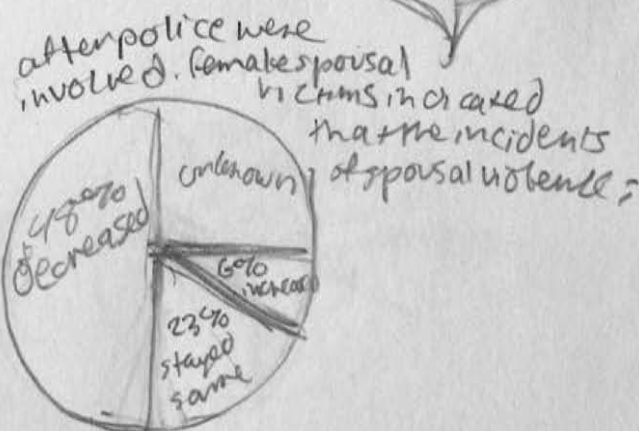 after police were
involved. female spousal
victims indicated
that the incidents
of spousal violence:
unknown
48%
decreased
6%
increased
23%
stayed
same